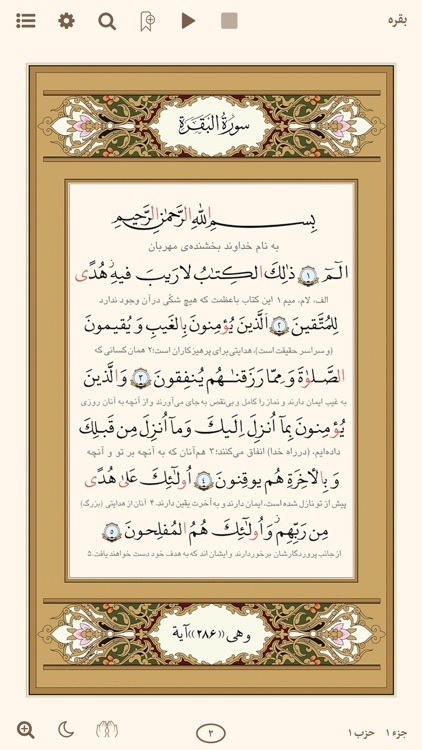 بقره
سورة البقرة
بسم الله الرحمن الرحیم
به نام خداوند بخشنده‌ی مهربان
الٓمٓ ۱ ذٰلِكَ الكِتٰبُ لا رَیبَ فیهِ هُدًی
الف، لام، میم ۱ این کتاب باعظمت که هیچ شکّی در آن وجود ندارد
لِلمُتَّقینَ ۲ اَلَّذینَ یُؤمِنونَ بِالغَیبِ وَ یُقیمونَ
(و سراسر حقیقت است)، هدایتی برای پرهیزکاران است؛ ۲ همان کسانی که
الصَّلوٰةَ وَ مِمّا رَزَقنٰهُم یُنفِقونَ ۳ وَ الَّذینَ
به غیب ایمان دارند و نماز را کامل و بی‌نقص به جای می‌آورند و از آنچه به آنان روزی
یُؤمِنونَ بِمآ اُنزِلَ اِلَیكَ وَ مآ اُنزِلَ مِن قَبلِكَ
داده‌ایم، (در راه خدا) انفاق می‌کنند؛ ۳ هم‌آنان که به آنچه بر تو و آنچه
وَ بِالأخِرَةِ هُم یوقِنونَ ۴ اُولٰئِكَ عَلیٰ هُدًی
پیش از تو نازل شده است، ایمان دارند و به آخرت یقین دارند. ۴ آنان از هدایتی (بزرگ)
مِن رَبِّهِم وَ اُولٰئِكَ هُمُ المُفلِحونَ ۵
از جانب پروردگارشان برخوردارند و ایشان اند که به هدف خود دست خواهند یافت. ۵
وهی ((۲۸۶)) آیة
جزء ۱ حزب ۱
۲